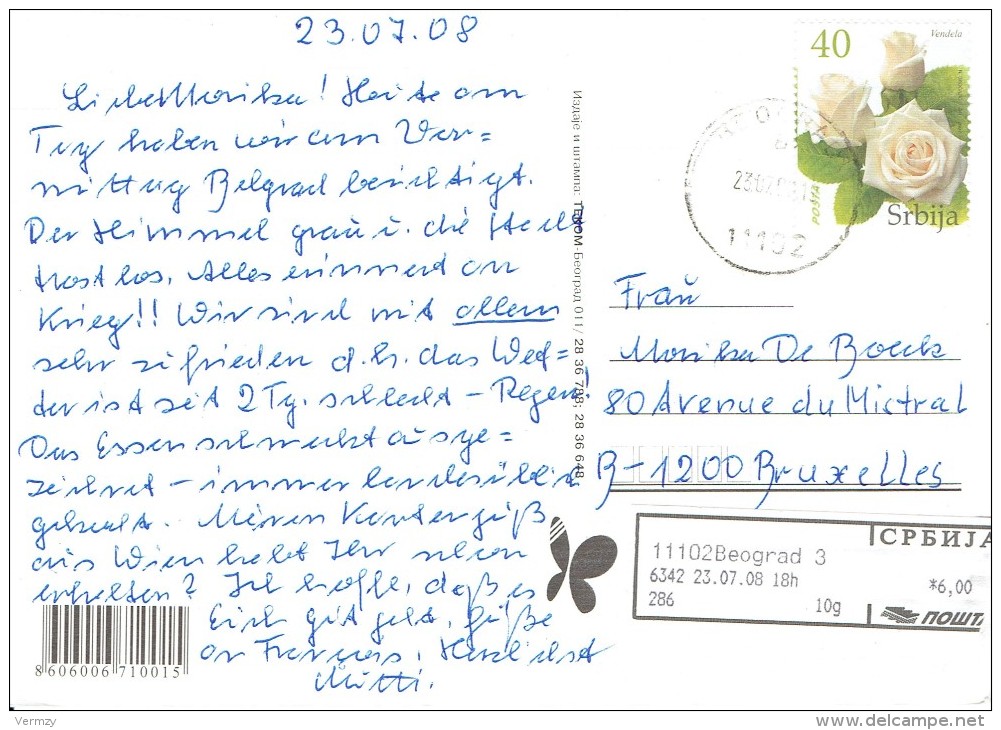 23.07.08
Liebe Monika! Heute am
Tag haben wir am Vor=
mittag Belgrad besichtigt.
Der Himmel grau u. die Stadt
trostlos, Alles erinnert an
Krieg!! Wir sind mit allem
sehr zufrieden d.h. das Wet=
ter ist seit 2 Tg. schlecht - Regen!
Das Essen schmeckt ausge=
zeichnet - immer landesüblich
gekocht. Meinen Kartengruß
aus Wien habt Ihr schon
erhalten? Ich hoffe, daß es
Euch gut geht, Grüße
an Francois, Herzlichst
Mutti.
Издаје и штампа: -Београд 011/ 28 36 788; 28 36 648
40
Vendela
POŠTA
Srbija
23.07.08
11102
Frau
Monika De Boeck
80 Avenue du Mistral
B-1200 Bruxelles
11102Beograd 3
6342 23.07.08 18h
286
10g
СРБИЈА
*6,00
ПОШТА
8 606006 710015
Vermzy
delcampe.net